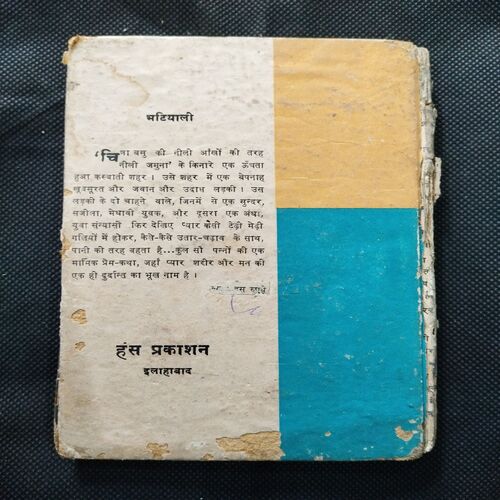 भटियाली
'चित्रा बसु की नीली आँखों की तरह
नीली जमुना' के किनारे एक ऊँघता
हुआ कस्बाती शहर । उसे शहर में एक बेपनाह
खूबसूरत और जवान और उदास लड़की । उस
लड़की के दो चाहने वाले, जिनमें से एक सुन्दर,
सजीला, मेधावी युवक, और दूसरा एक अंधा,
युवा संन्यासी फिर देखिए प्यार कैसी टेढ़ी मेढ़ी
गलियों में होकर, कैसे-कैसे उतार-चढ़ाव के साथ,
पानी की तरह बहता है...कुल सौ पन्नों की एक
मार्मिक प्रेम-कथा, जहाँ प्यार शरीर और मन की
एक ही दुर्दान्त का भूख नाम है ।
हंस प्रकाशन
इलाहाबाद